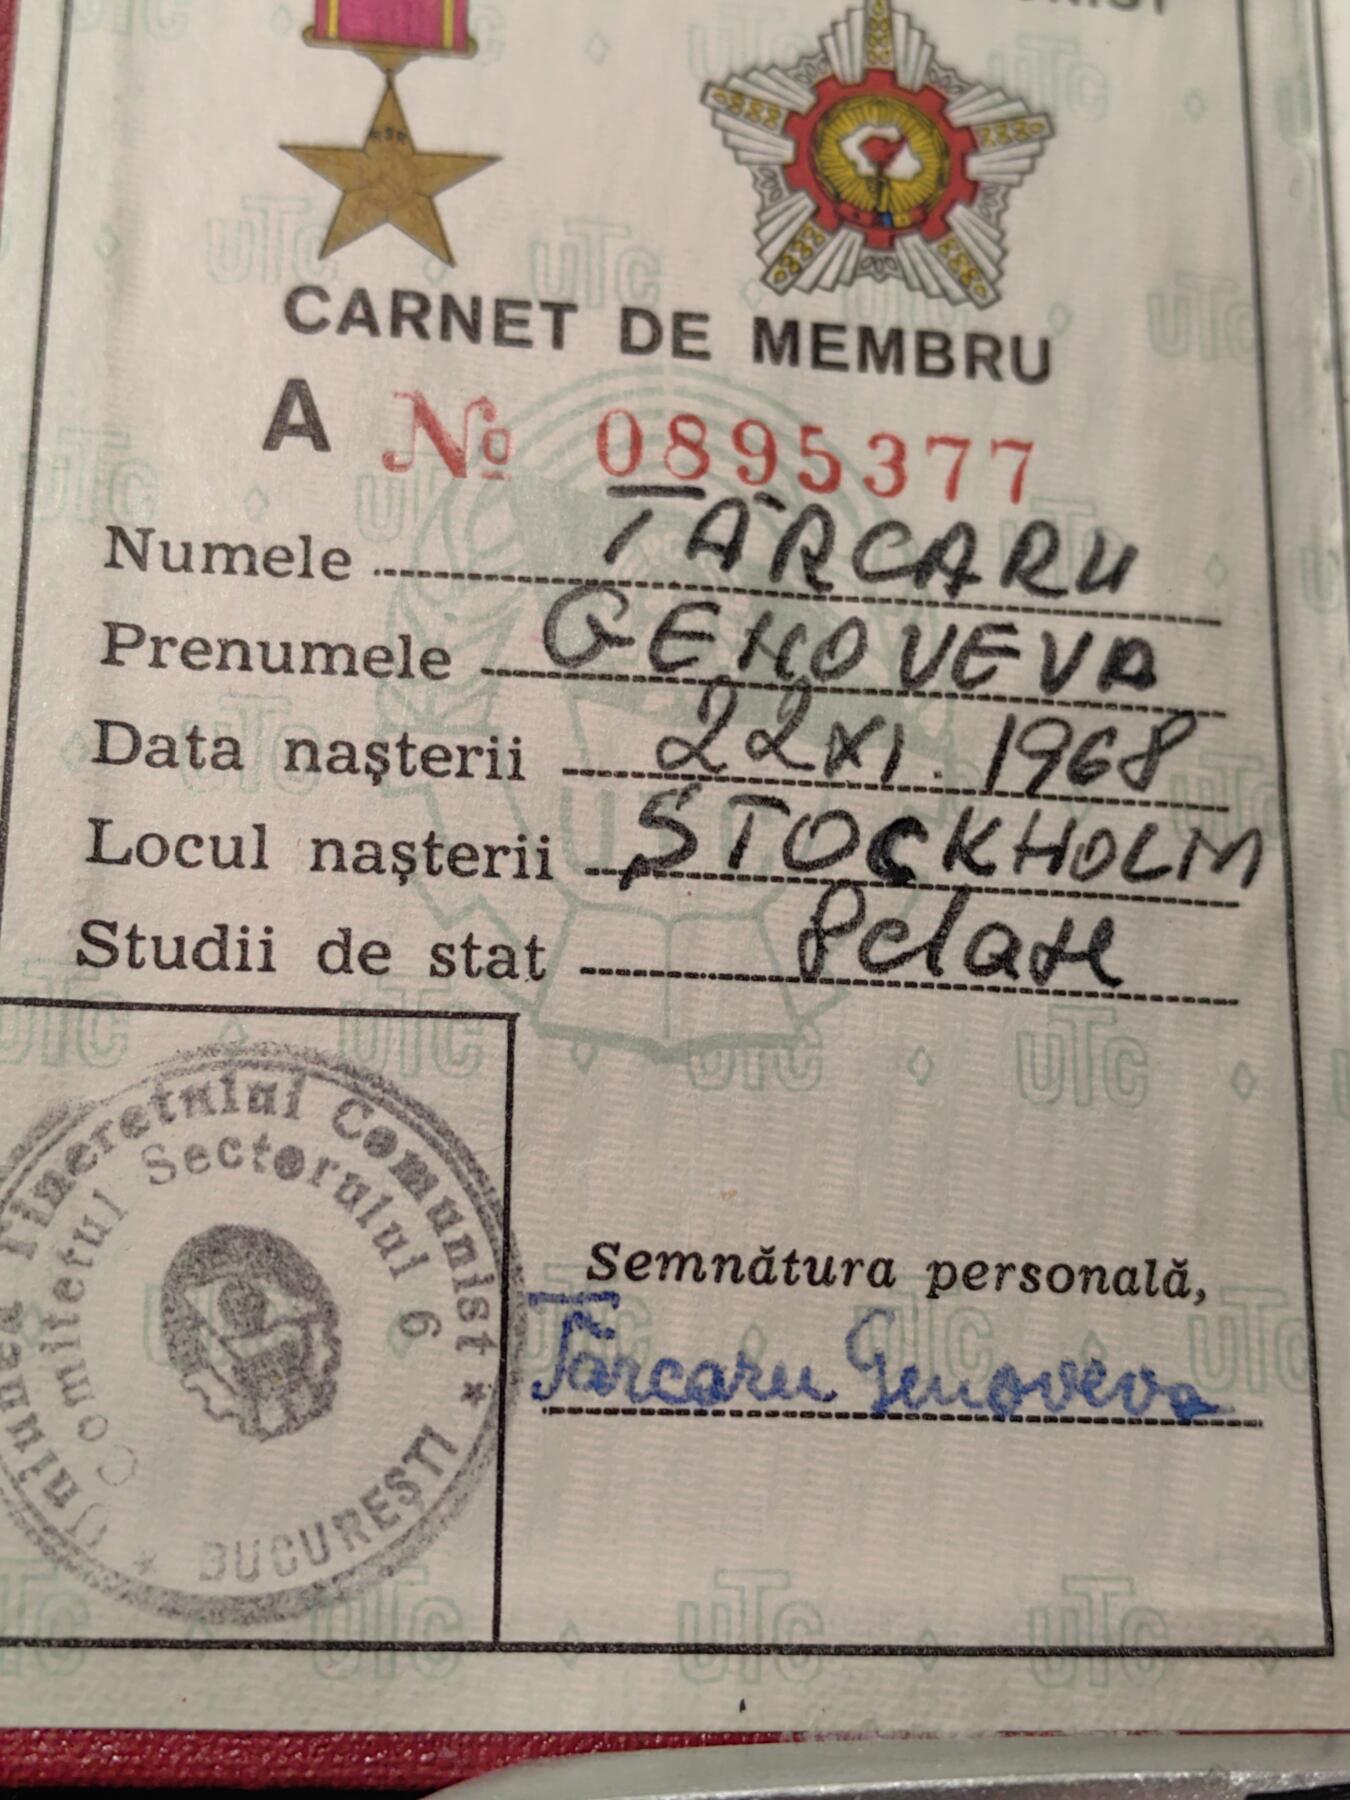 CARNET DE MEMBRU
A № 0895377
Numele TÂRCARU
Prenumele GENOVEVA
Data nașterii 22 XI. 1968
Locul nașterii STOCKHOLM
Studii de stat 8 clase
Uniunea Tineretului Comunist *
Comitetul Sectorului 6
* BUCUREȘTI
Semnătura personală,
Târcaru Genoveva